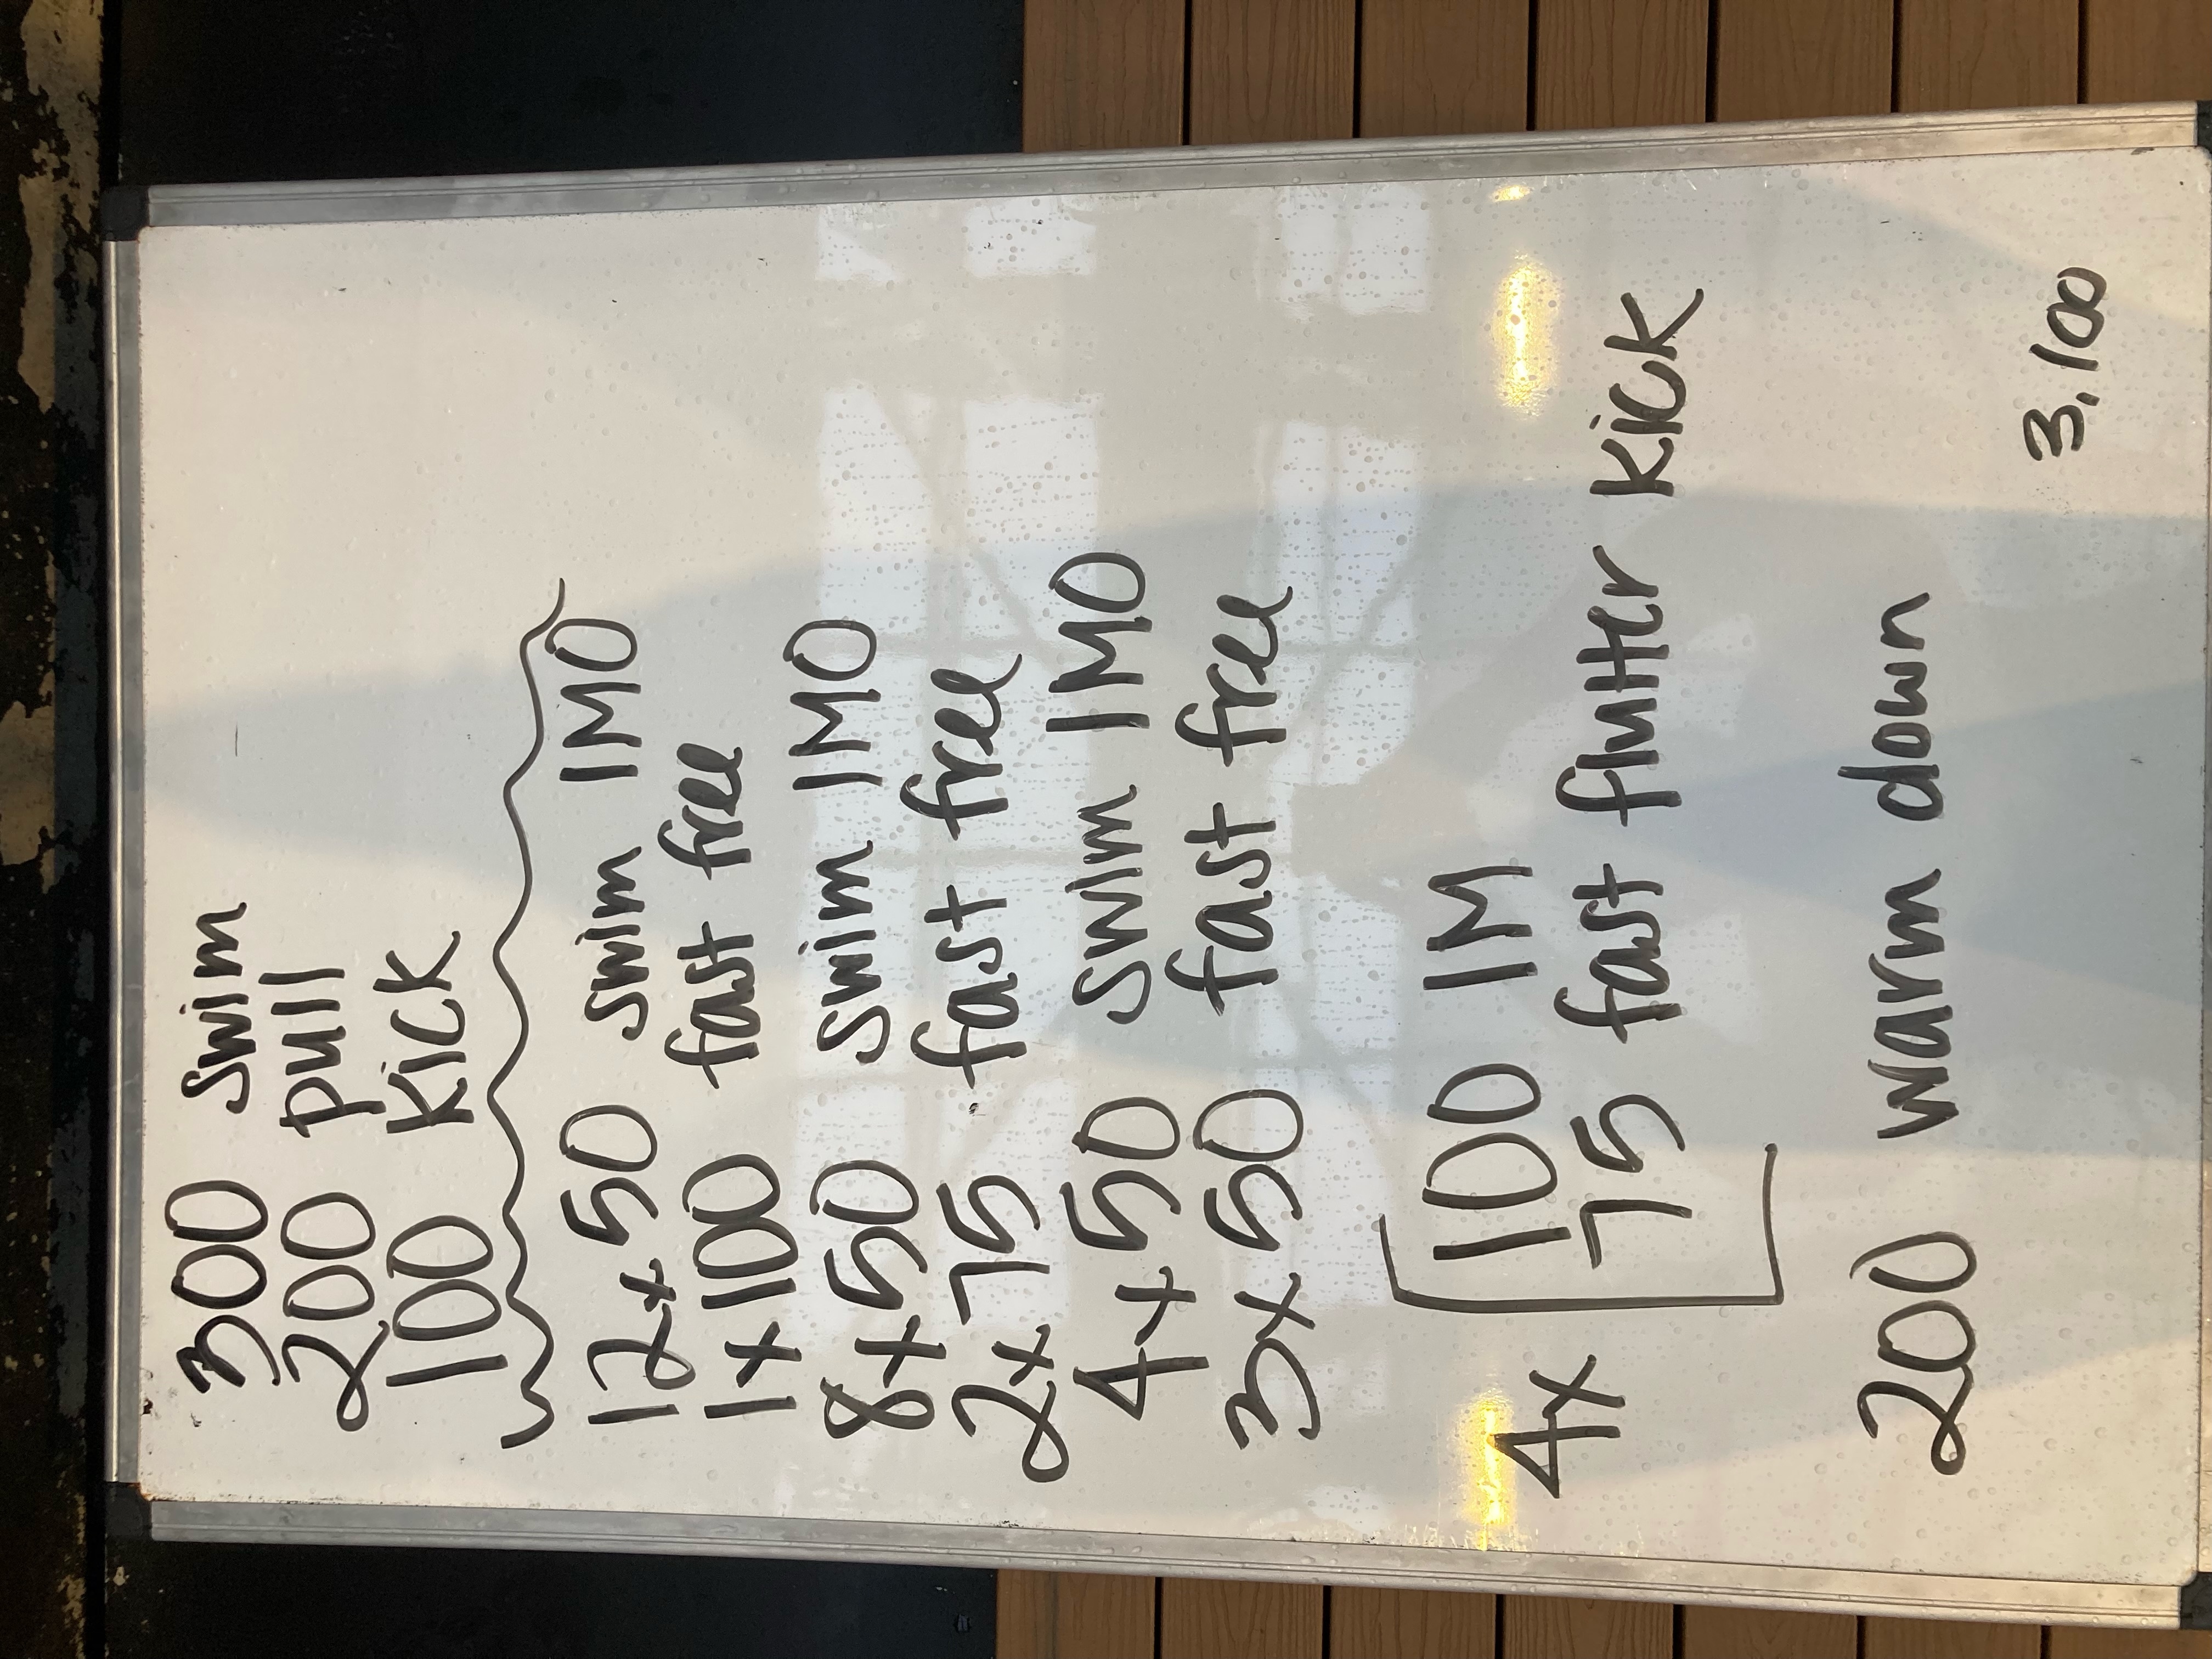 300 swim
200 pull
100 kick
12x50 swim IMO
1x100 fast free
8x50 swim IMO
2x75 fast free
4x50 swim IMO
3x50 fast free
4x
100 IM
75 fast flutter kick
200 warm down
3,100